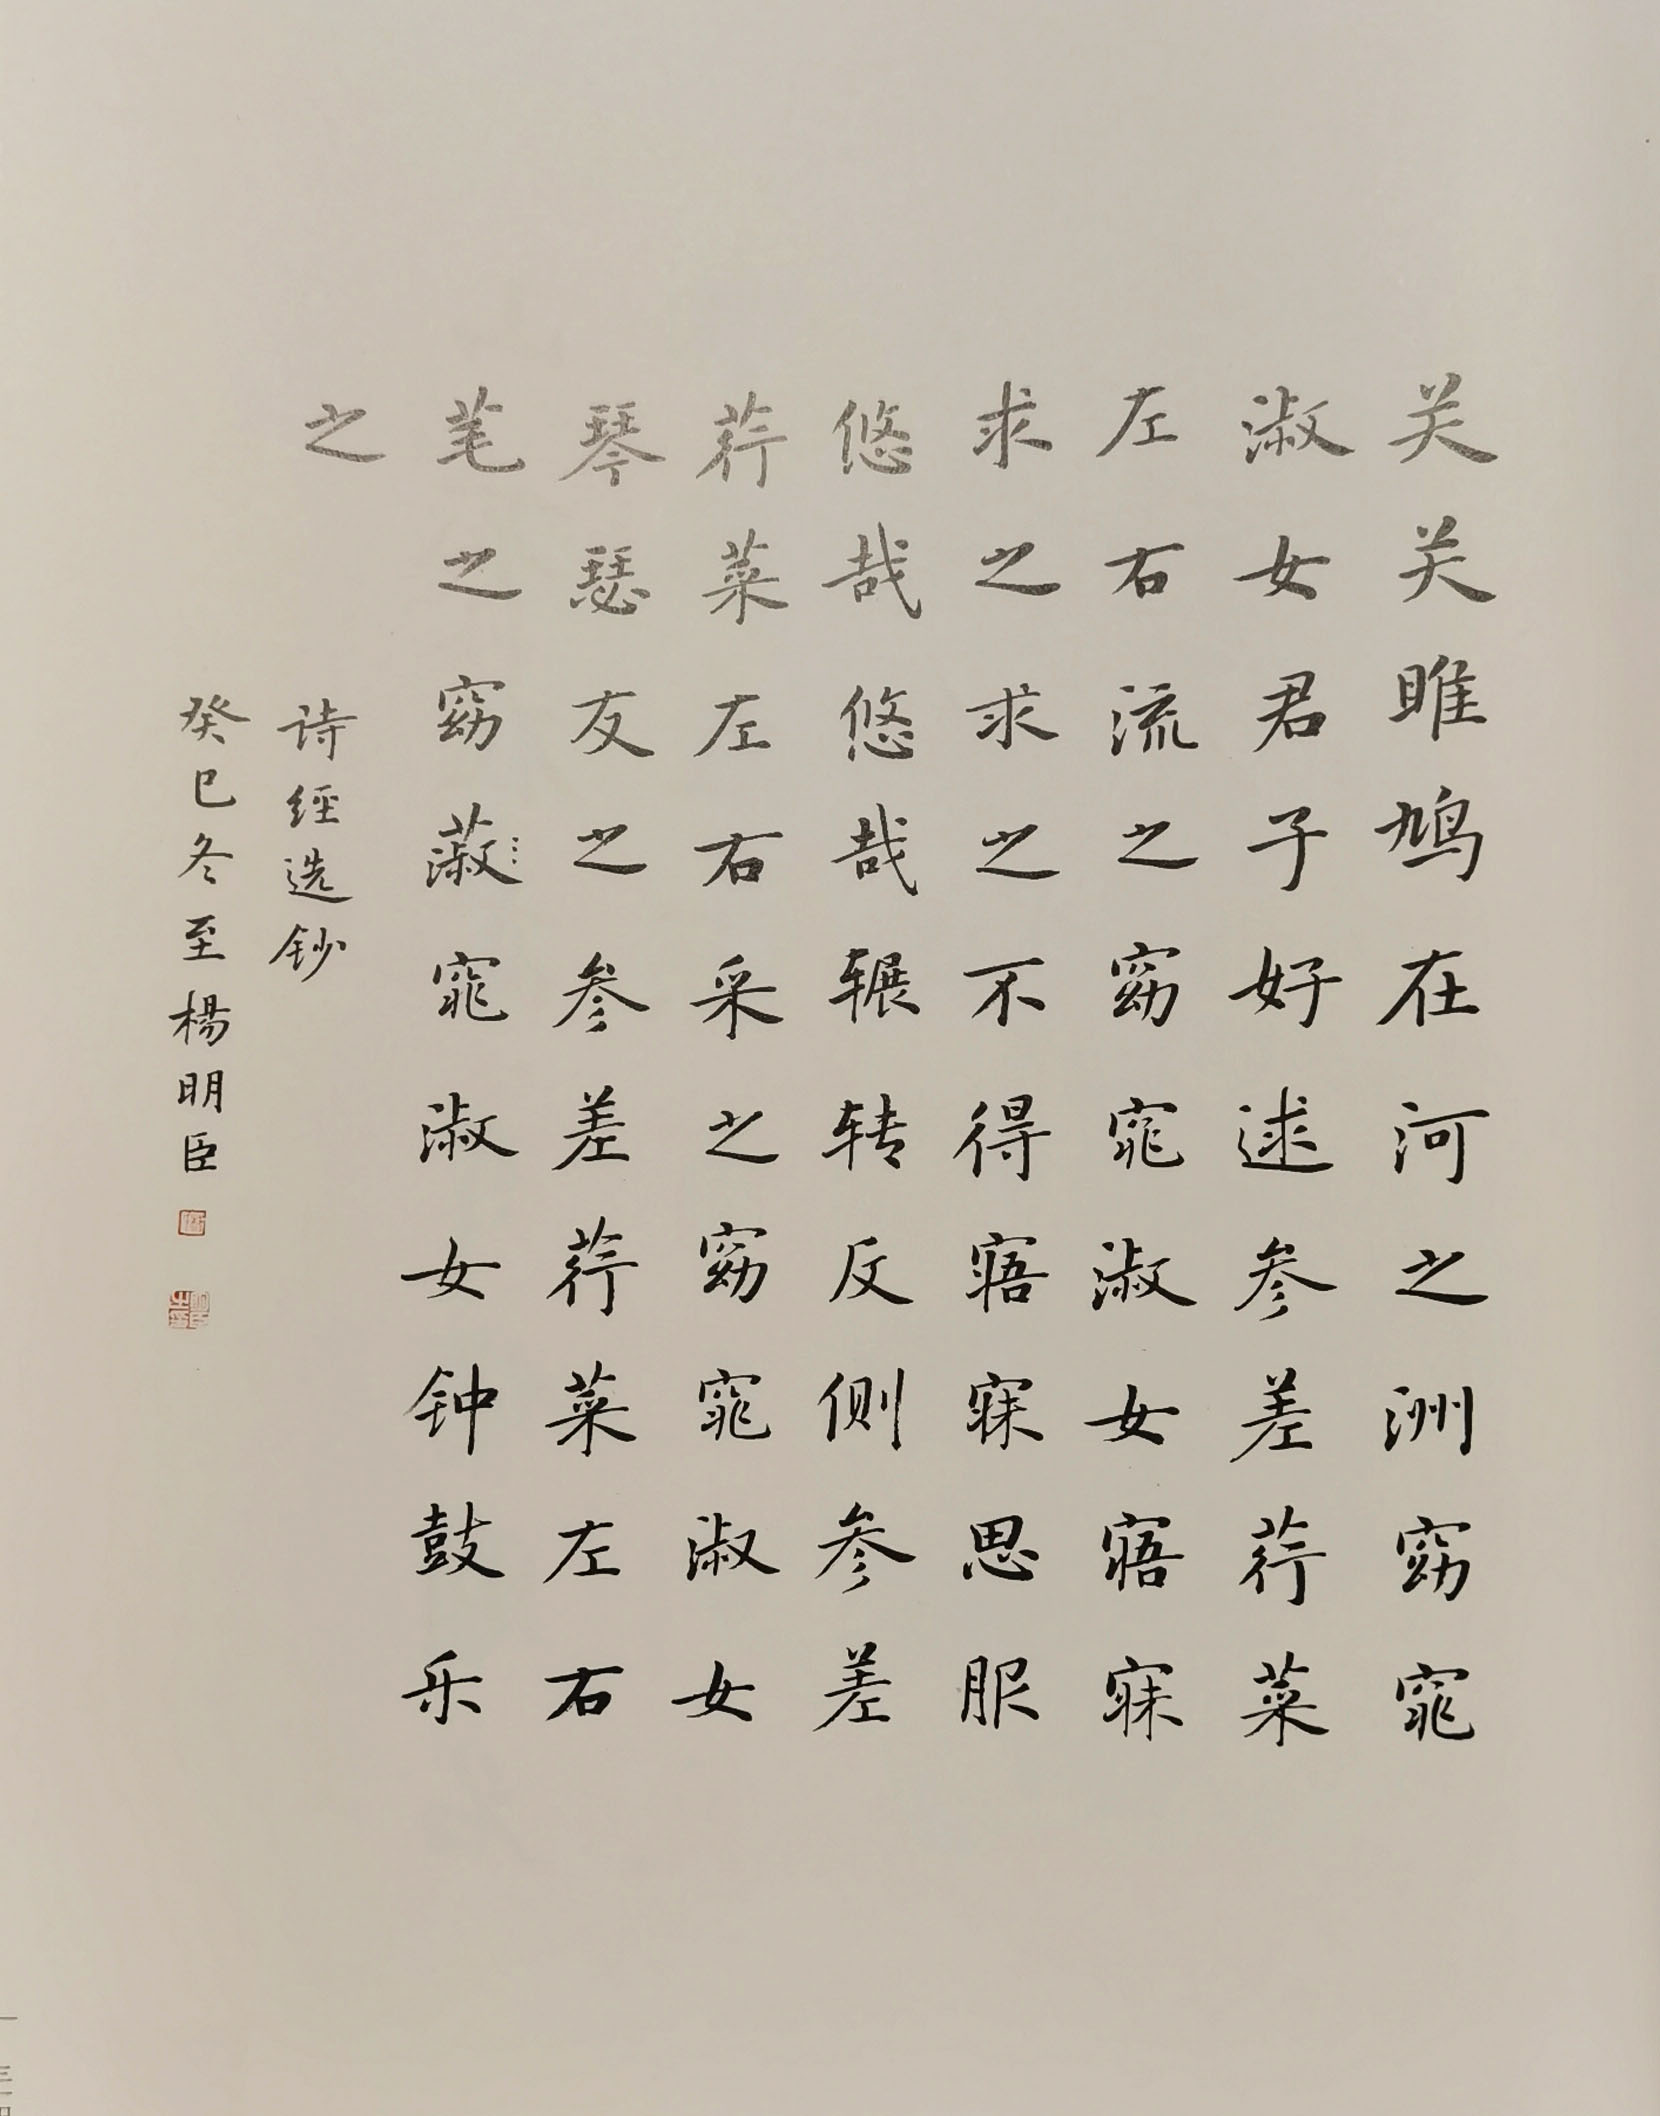 关关雎鸠在河之洲窈窕
淑女君子好逑参差荇菜
左右流之窈窕淑女寤寐
求之求之不得寤寐思服
悠哉悠哉辗转反侧参差
荇菜左右采之窈窕淑女
琴瑟友之参差荇菜左右
芼之窈淑窕淑女钟鼓乐
之
诗经选钞
癸巳冬至楊明臣